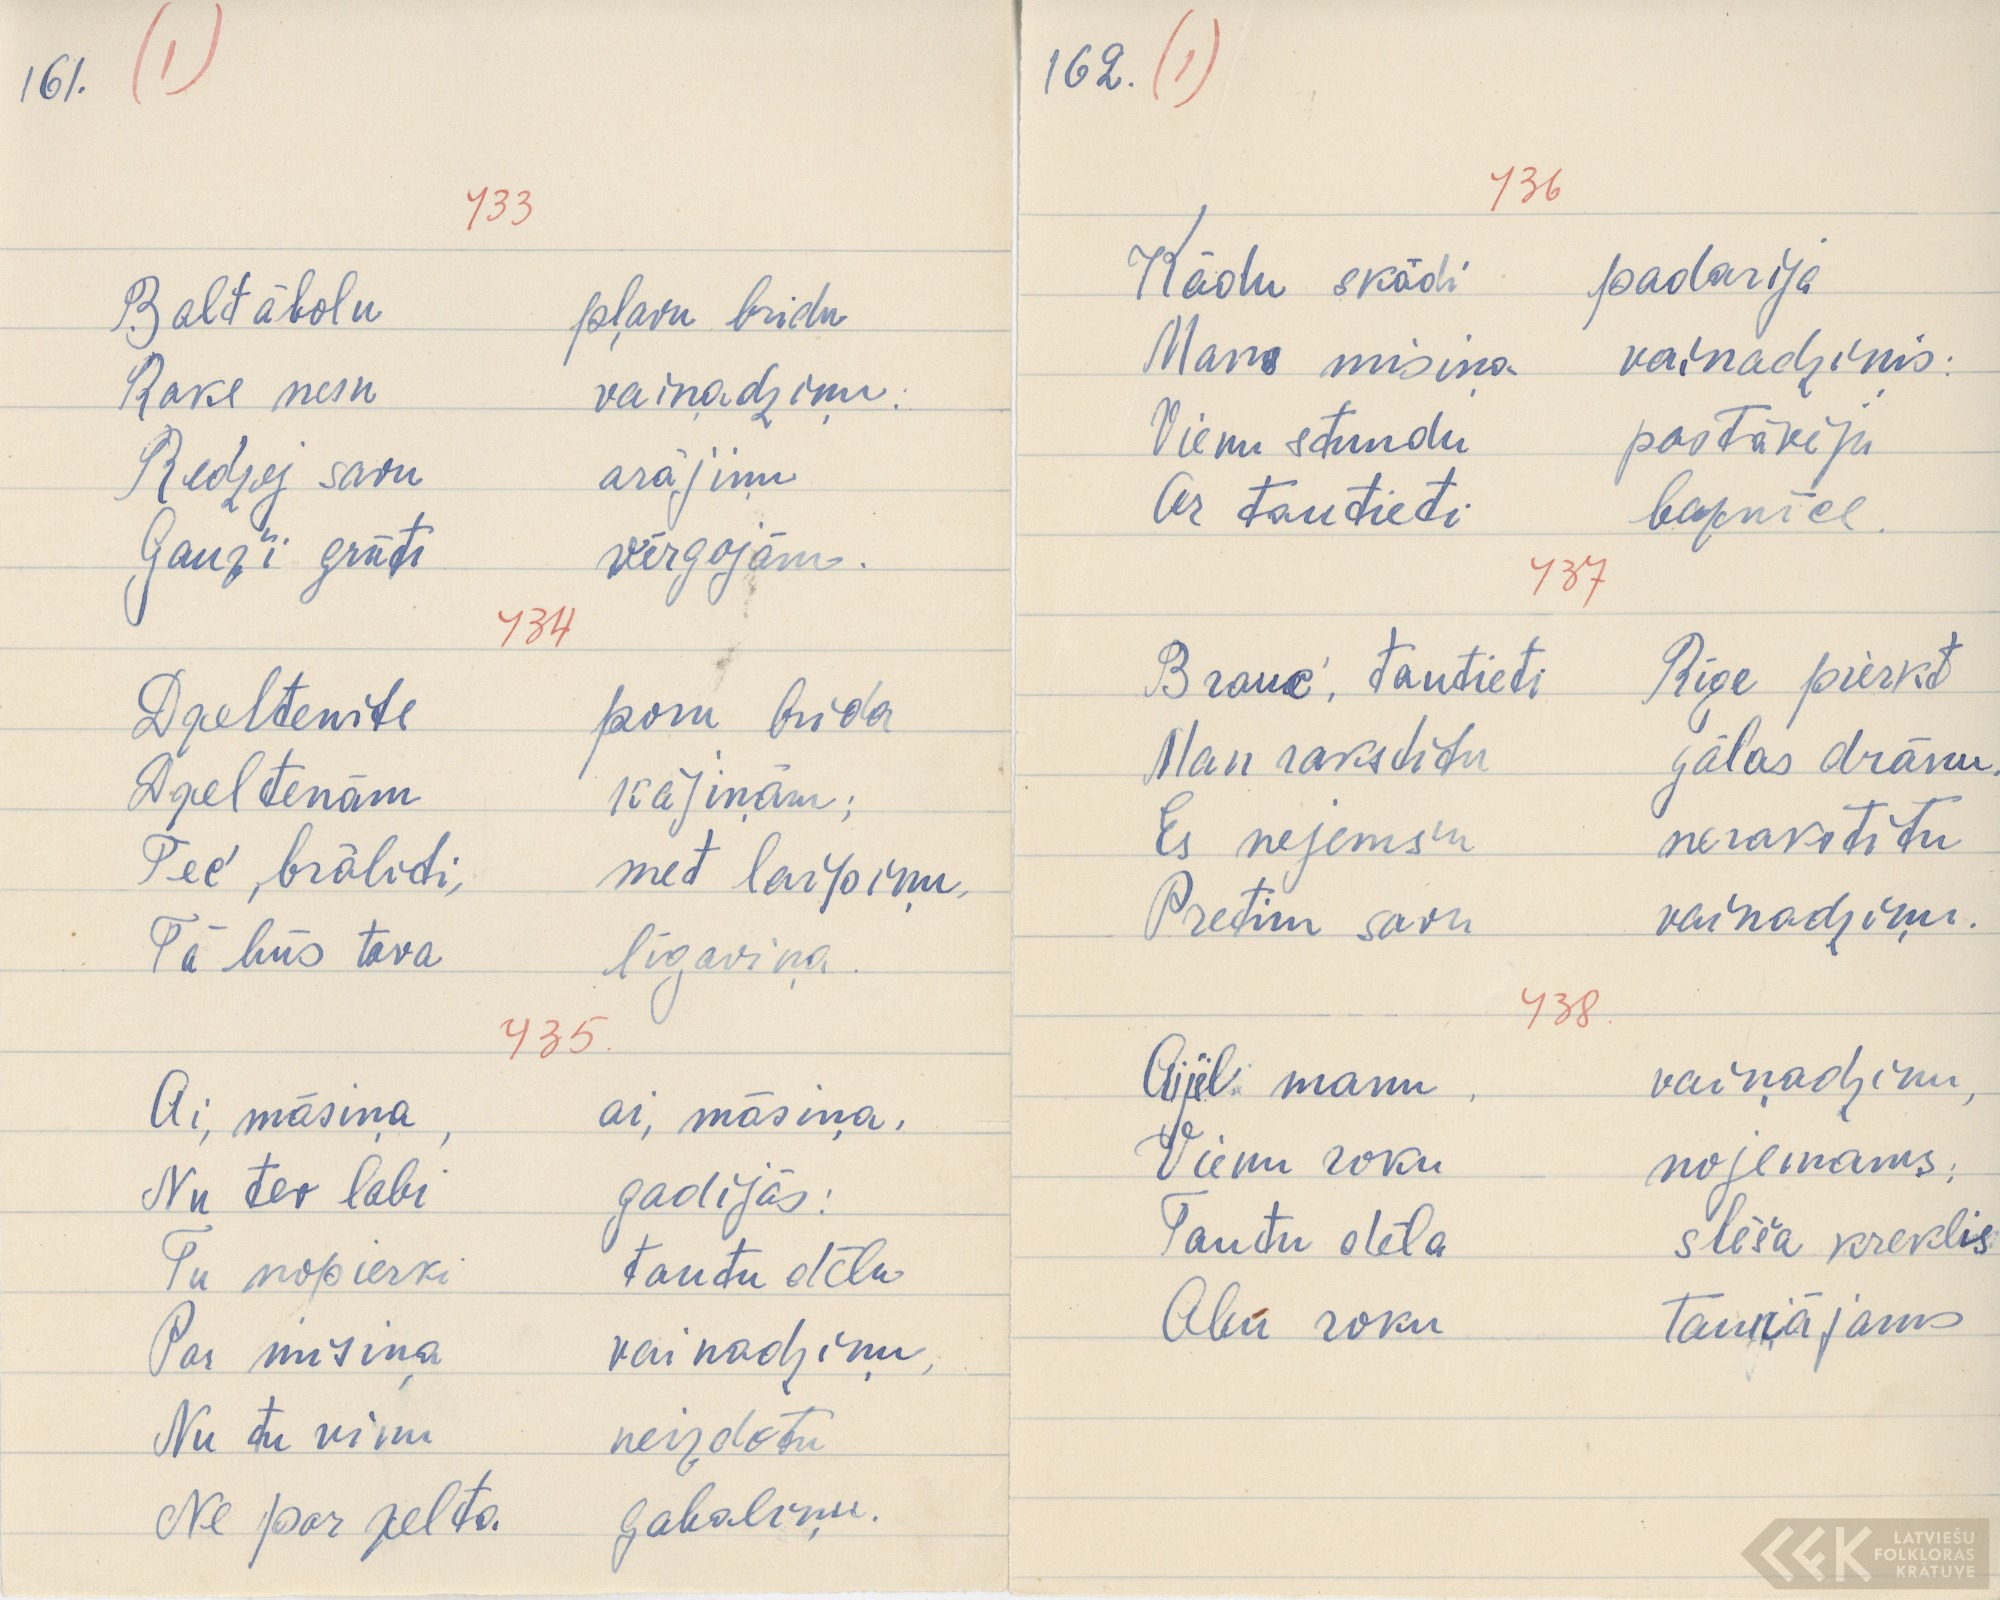 161. (1)
733
Baltābolu pļavu bridu
Roke nesu vaiņadziņu:
Redzej savu arājiņu
Gauži grūti vērgojām.
734
Dzeltenite poru brida
Dzeltenām kājiņām;
Teč, brālīti, met laipiņu,
Tā būs tava līgaviņa.
735.
Ai, māsiņa, ai, māsiņa,
Nu tev labi gadijās:
Tu nopierki tautu dēlu
Par misiņa vainadziņu,
Nu tu viņu neizdotu
Ne par zelta gabaliņu.
162. (1)
736
Kādu skādi padarija
Mans misiņa vainadziņis:
Vienu stundu postāvēja
Ar tautieti baznīce.
737
Brauc, tautieti Rīge pierkt
Man rakstitu gālas drānu.
Es nejemšu nerakstitu
Pretim savu vainadziņu.
738.
manu vaiņadziņu,
Vienu roku nojemams;
Tautu dēla slēša kreklis
Abu roku
LATVIEŠU
FOLKLORAS
KRĀTUVE